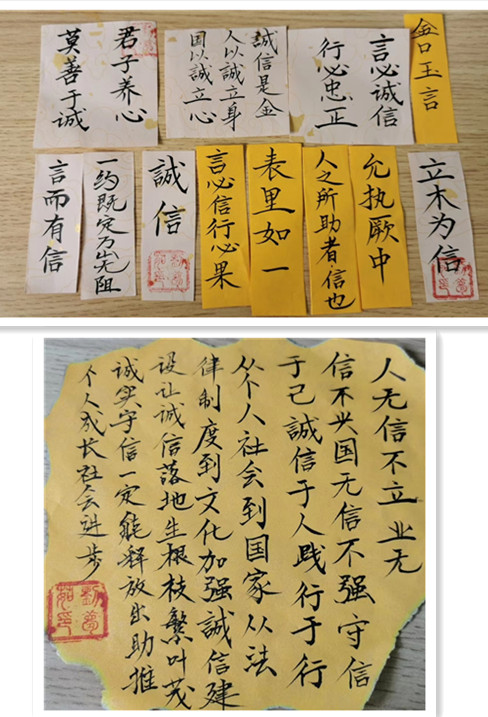 金口玉言
言必诚信
行必忠正
誠信是金
人以誠立身
国以誠立心
君子养心
莫善于诚
立木为信
允执厥中
人之所助者信也
表里如一
言必信行必果
誠信
一约既定万山无阻
言而有信
人无信不立业无
信不兴国无信不强守信
于己誠信于人践行于行
从个人社会到国家从法
律制度到文化加强誠信建
设让诚信落地生根枝繁叶茂
诚实守信一定能释放出助推
个人成长社会进步